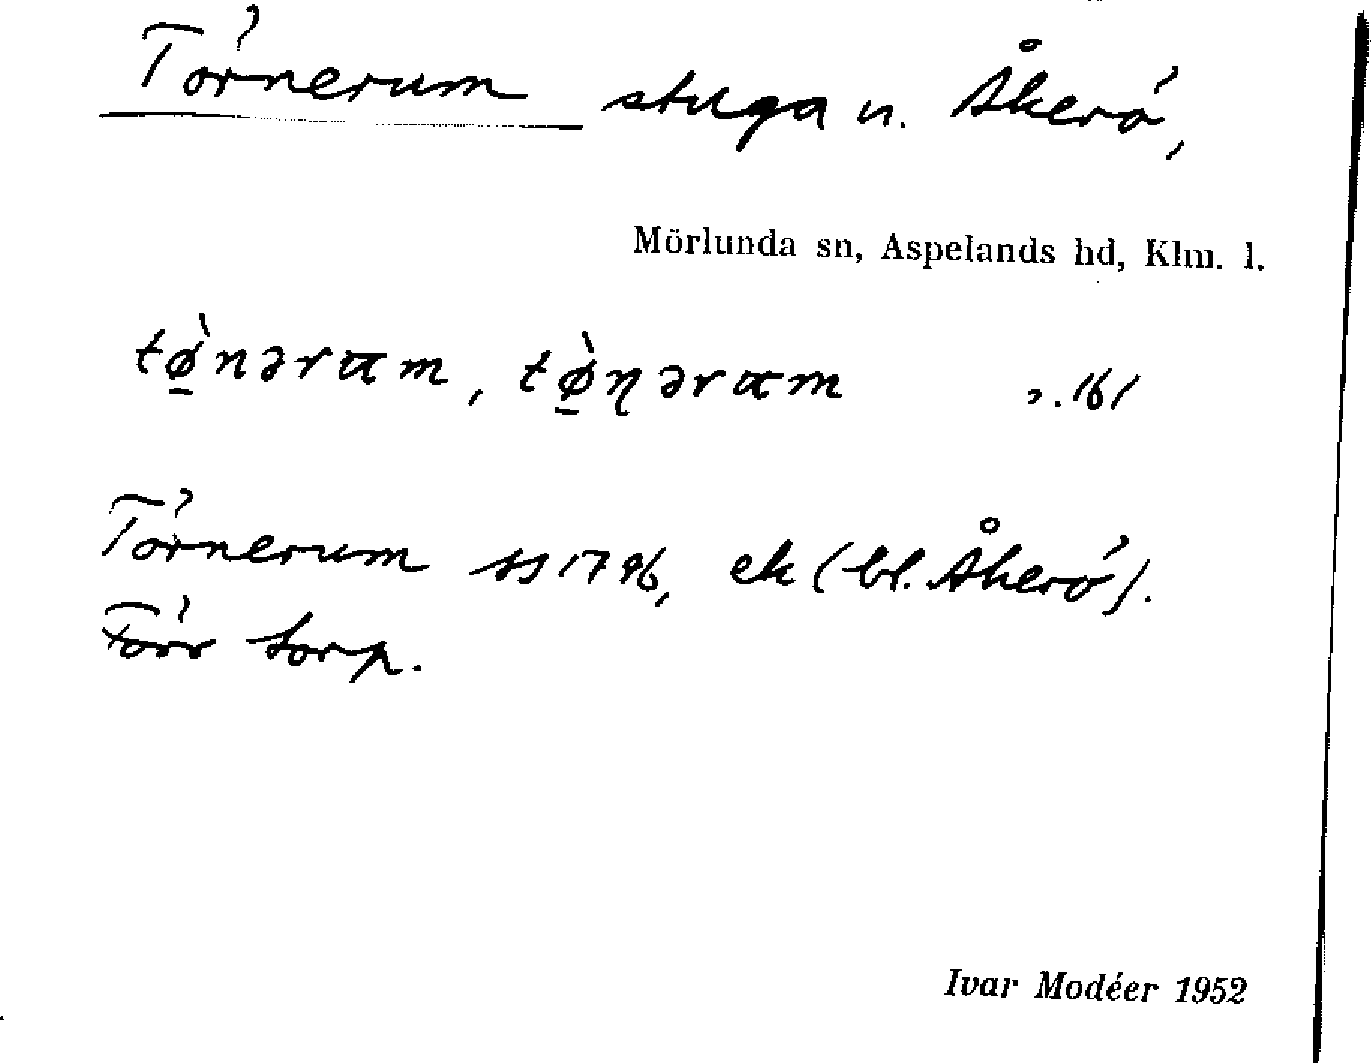 Törnerum stuga u. Åkerö,
Mörlunda sn, Aspelands hd, Klm. l.
tø̠̀nərum, tø̠̀ɳərum 2.161
Törnerum js 1796, ek (bl. Åkerö).
Förr torp.
Ivar Modéer 1952